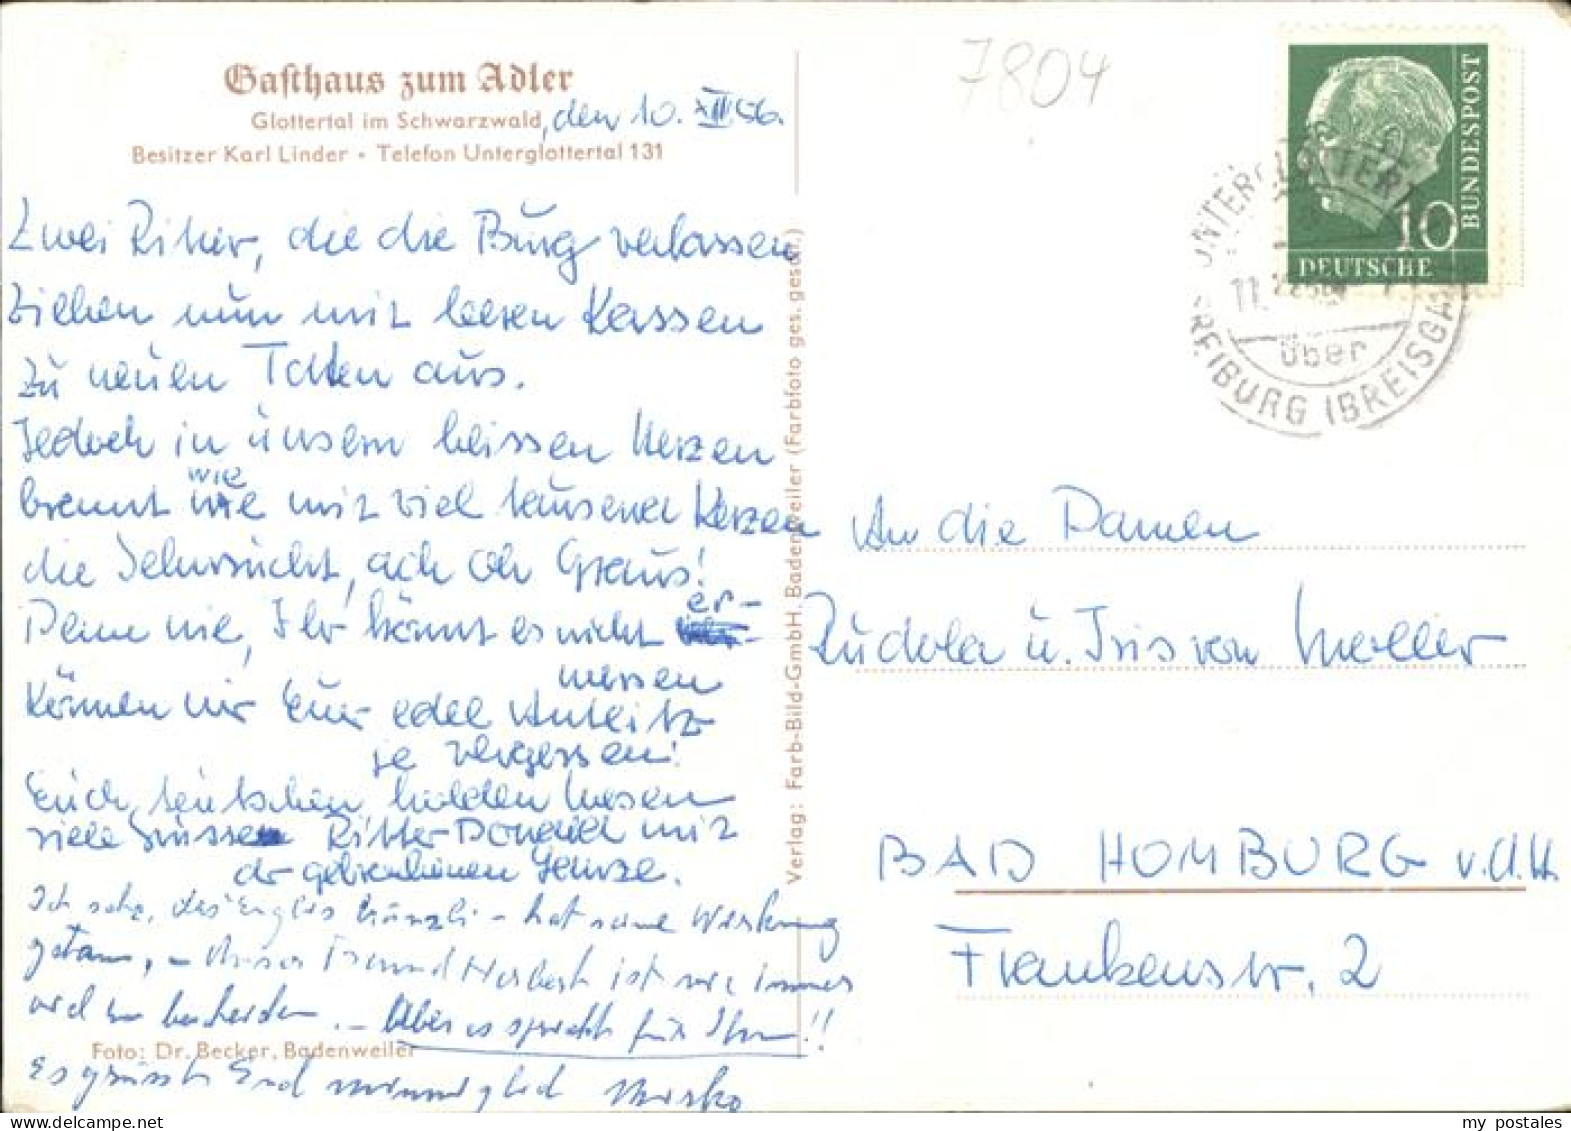 Gasthaus zum Adler
Glottertal im Schwarzwald, den 10. XII 56.
Besitzer Karl Linder • Telefon Unterglottertal 131
7804
BUNDESPOST
10
DEUTSCHE
UNTERGLOTTERTAL
11.
über
FREIBURG (BREISGAU
Zwei Ritter, die die Burg verlassen
Ziehen nun mit leeren Kassen
Zu neuen Taten aus.
Jedoch in unsern heissen Herzen
wie
brennt wie mit viel tausend Kerzen
die Sehnsucht, ach oh Graus!
er-
Denn nie, Ihr könnt es nicht
messen
Können wir Eur edel Antlitz
je vergessen!
Euch, holden Wesen
viele Grüsse Ritter mit
der gebrochenen Lanze.
Ich sehe, das - hat seine Wirkung
getan, - Unser Freund Herbert ist wie immer
viel zu bescheiden. - Aber es spricht für Ihn!!
Es grüsst Euch
An die Damen
u. Iris von
BAD HOMBURG v.d.H.
Frankenstr. 2
Foto: Dr. Becker, Badenweiler
Verlag: Farb-Bild-GmbH. Badenweiler (Farbfoto ges. gesch.)
my postales